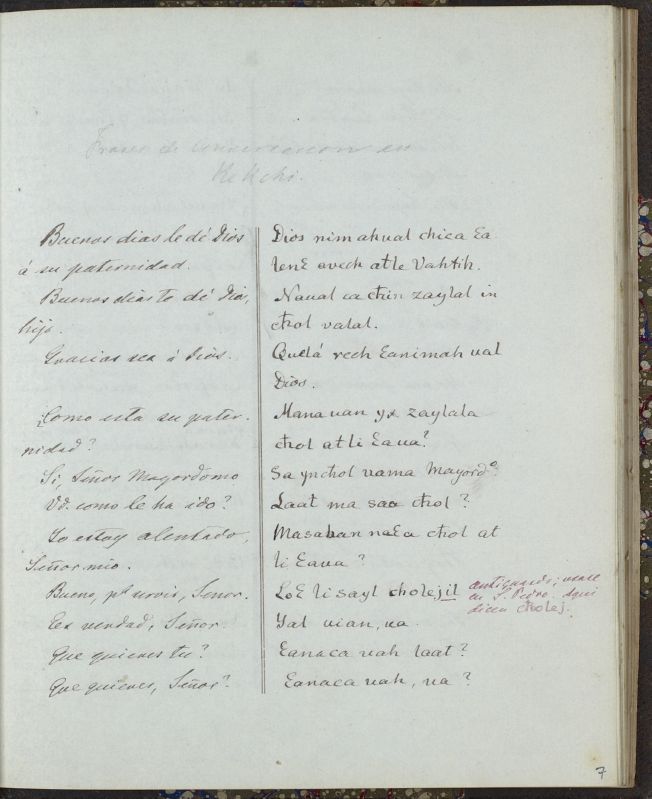 Frases de conversacion en
Kekchi.
Buenos dias le dé Dios
á su paternidad.
Buenos dias te dé Dios,
hijo.
Gracias sea á Dios.
¿Como esta su pater-
nidad?
Si, Señor Mayordomo
Vd. como le ha ido?
Yo estoy alentado,
Señor mio.
Bueno, pª servir, Senor.
Es verdad, Señor
Que quieres tu?
Que quieres, Señor?
Dios nim ahual chica Ɛa
lenƐ avech atle Vahtih.
Naual ca chin zaylal in
chol valal.
Quelá rech Ɛanimah ual
Dios.
Mana uan yx zaylala
chol atli Ɛaua?
Sa ynchol vama Mayordº
Laat ma saa chol?
Masahan naƐa chol at
li Ɛaua?
LoƐ li sayl cholejil
antiguado; usase
en S. Pedro. Aqui
dicen cholej.
Yal uian, va.
Ɛanaca uah laat?
Ɛanaca uah, va?
7